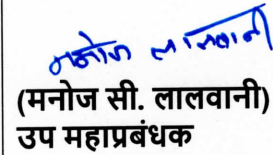 मनोज लालवानी
(मनोज सी. लालवानी)
उप महाप्रबंधक